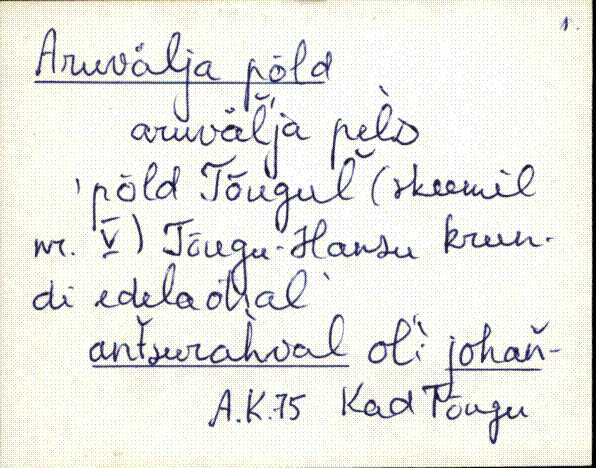 1.
Aruvälja põld
aruväĺja pèlᴅ
'põld Tõuguĺ (skeemil
nr. V) Tõugu-Hansu krun-
di edelaõõial
antšurahval oĺ'i johaň-
A.K.75 Kad Tõugu